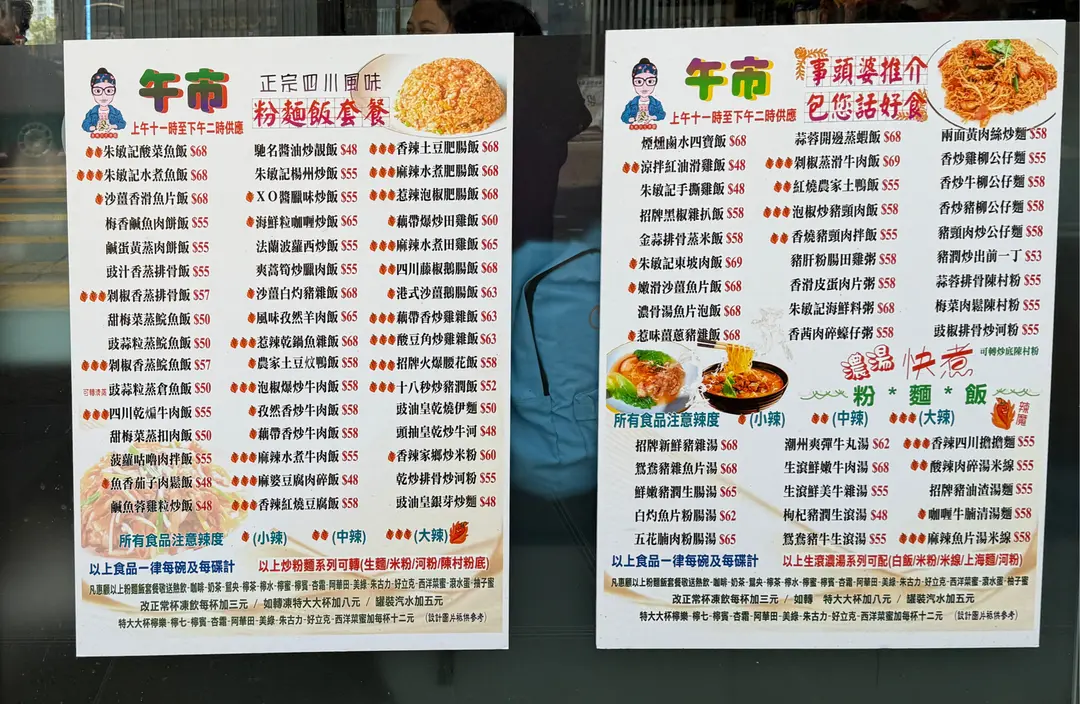 午市
上午十一時至下午二時供應
正宗四川風味
粉麵飯套餐
朱敏記酸菜魚飯 $68
朱敏記水煮魚飯 $68
沙薑香滑魚片飯 $68
梅香鹹魚肉餅飯 $55
鹹蛋黃蒸肉餅飯 $55
豉汁香蒸排骨飯 $55
剁椒香蒸排骨飯 $57
甜梅菜蒸鯇魚飯 $50
豉蒜粒蒸鯇魚飯 $50
剁椒香蒸鯇魚飯 $57
豉蒜粒蒸倉魚飯 $50
四川乾煸牛肉飯 $55
甜梅菜蒸扣肉飯 $50
菠蘿咕嚕肉拌飯 $55
魚香茄子肉鬆飯 $48
鹹魚蓉雞粒炒飯 $48
馳名醬油炒靚飯 $48
朱敏記楊州炒飯 $55
XO醬臘味炒飯 $55
海鮮粒咖喱炒飯 $65
法蘭波蘿西炒飯 $55
爽蒿筍炒臘肉飯 $55
沙薑白灼豬雜飯 $68
風味孜然羊肉飯 $65
惹辣乾鍋魚雜飯 $68
農家土豆炆鴨飯 $58
泡椒爆炒牛肉飯 $58
孜然香炒牛肉飯 $58
藕帶香炒牛肉飯 $58
麻辣水煮牛肉飯 $55
麻婆豆腐肉碎飯 $48
香辣紅燒豆腐飯 $58
香辣土豆肥腸飯 $68
麻辣水煮肥腸飯 $68
惹辣泡椒肥腸飯 $68
藕帶爆炒田雞飯 $60
麻辣水煮田雞飯 $65
四川藤椒鵝腸飯 $68
港式沙薑鵝腸飯 $63
藕帶香炒雞雜飯 $63
酸豆角炒雞雜飯 $63
招牌火爆腰花飯 $58
十八秒炒豬潤飯 $52
豉油皇乾燒伊麵 $50
頭抽皇乾炒牛河 $48
香辣家鄉炒米粉 $60
乾炒排骨炒河粉 $55
豉油皇銀芽炒麵 $48
所有食品注意辣度 (小辣) (中辣) (大辣)
以上食品一律每碗及每碟計 以上炒粉麵系列可轉(生麵/米粉/河粉/陳村粉底)
凡惠顧以上粉麵飯套餐敬送熱飲-咖啡-奶茶-鴛央-檸茶-檸水-檸蜜-檸賓-杏霜-阿華田-美綠-朱古力-好立克-西洋菜蜜-滾水蛋-柚子蜜
改正常杯凍飲每杯加三元 / 如轉凍特大大杯加八元 / 罐裝汽水加五元
特大大杯檸樂-檸七-檸賓-杏霜-阿華田-美綠-朱古力-好立克-西洋菜蜜加每杯十二元 (設計圖片祗供參考)
午市
上午十一時至下午二時供應
事頭婆推介
包您話好食
煙燻鹵水四寶飯 $68
涼拌紅油滑雞飯 $48
朱敏記手撕雞飯 $48
招牌黑椒雞扒飯 $58
金蒜排骨蒸米飯 $58
朱敏記東坡肉飯 $69
嫩滑沙薑魚片飯 $68
濃骨湯魚片泡飯 $68
惹味薑蔥豬雜飯 $68
蒜蓉開邊蒸蝦飯 $68
剁椒蒸滑牛肉飯 $69
紅燒農家土鴨飯 $55
泡椒炒豬頸肉飯 $58
香燒豬頸肉拌飯 $55
豬肝粉腸田雞粥 $58
香滑皮蛋肉片粥 $58
朱敏記海鮮料粥 $68
香茜肉碎蠔仔粥 $58
兩面黃肉絲炒麵 $58
香炒雞柳公仔麵 $55
香炒牛柳公仔麵 $58
香炒豬柳公仔麵 $58
豬頸肉炒公仔麵 $58
豬潤炒出前一丁 $53
蒜蓉排骨陳村粉 $55
梅菜肉鬆陳村粉 $55
豉椒排骨炒河粉 $55
可轉炒底陳村粉
濃湯 快煮
粉 * 麵 * 飯
所有食品注意辣度 (小辣) (中辣) (大辣)
辣魔
招牌新鮮豬雜湯 $68
鴛鴦豬雜魚片湯 $68
鮮嫩豬潤生腸湯 $65
白灼魚片粉腸湯 $62
五花腩肉粉腸湯 $65
潮州爽彈牛丸湯 $62
生滾鮮嫩牛肉湯 $68
生滾鮮美牛雜湯 $55
枸杞豬潤生滾湯 $48
鴛鴦豬牛生滾湯 $55
香辣四川擔擔麵 $55
酸辣肉碎湯米線 $55
招牌豬油渣湯麵 $55
咖喱牛腩清湯麵 $58
麻辣魚片湯米線 $58
以上食品一律每碗及每碟計 以上生滾濃湯系列可配(白飯/米粉/米線/上海麵/河粉)
凡惠顧以上粉麵飯套餐敬送熱飲-咖啡-奶茶-鴛央-檸茶-檸水-檸蜜-檸賓-杏霜-阿華田-美綠-朱古力-好立克-西洋菜蜜-滾水蛋-柚子蜜
改正常杯凍飲每杯加三元 / 如轉 特大大杯加八元 / 罐裝汽水加五元
特大大杯檸樂-檸七-檸賓-杏霜-阿華田-美綠-朱古力-好立克-西洋菜蜜加每杯十二元 (設計圖片祗供參考)